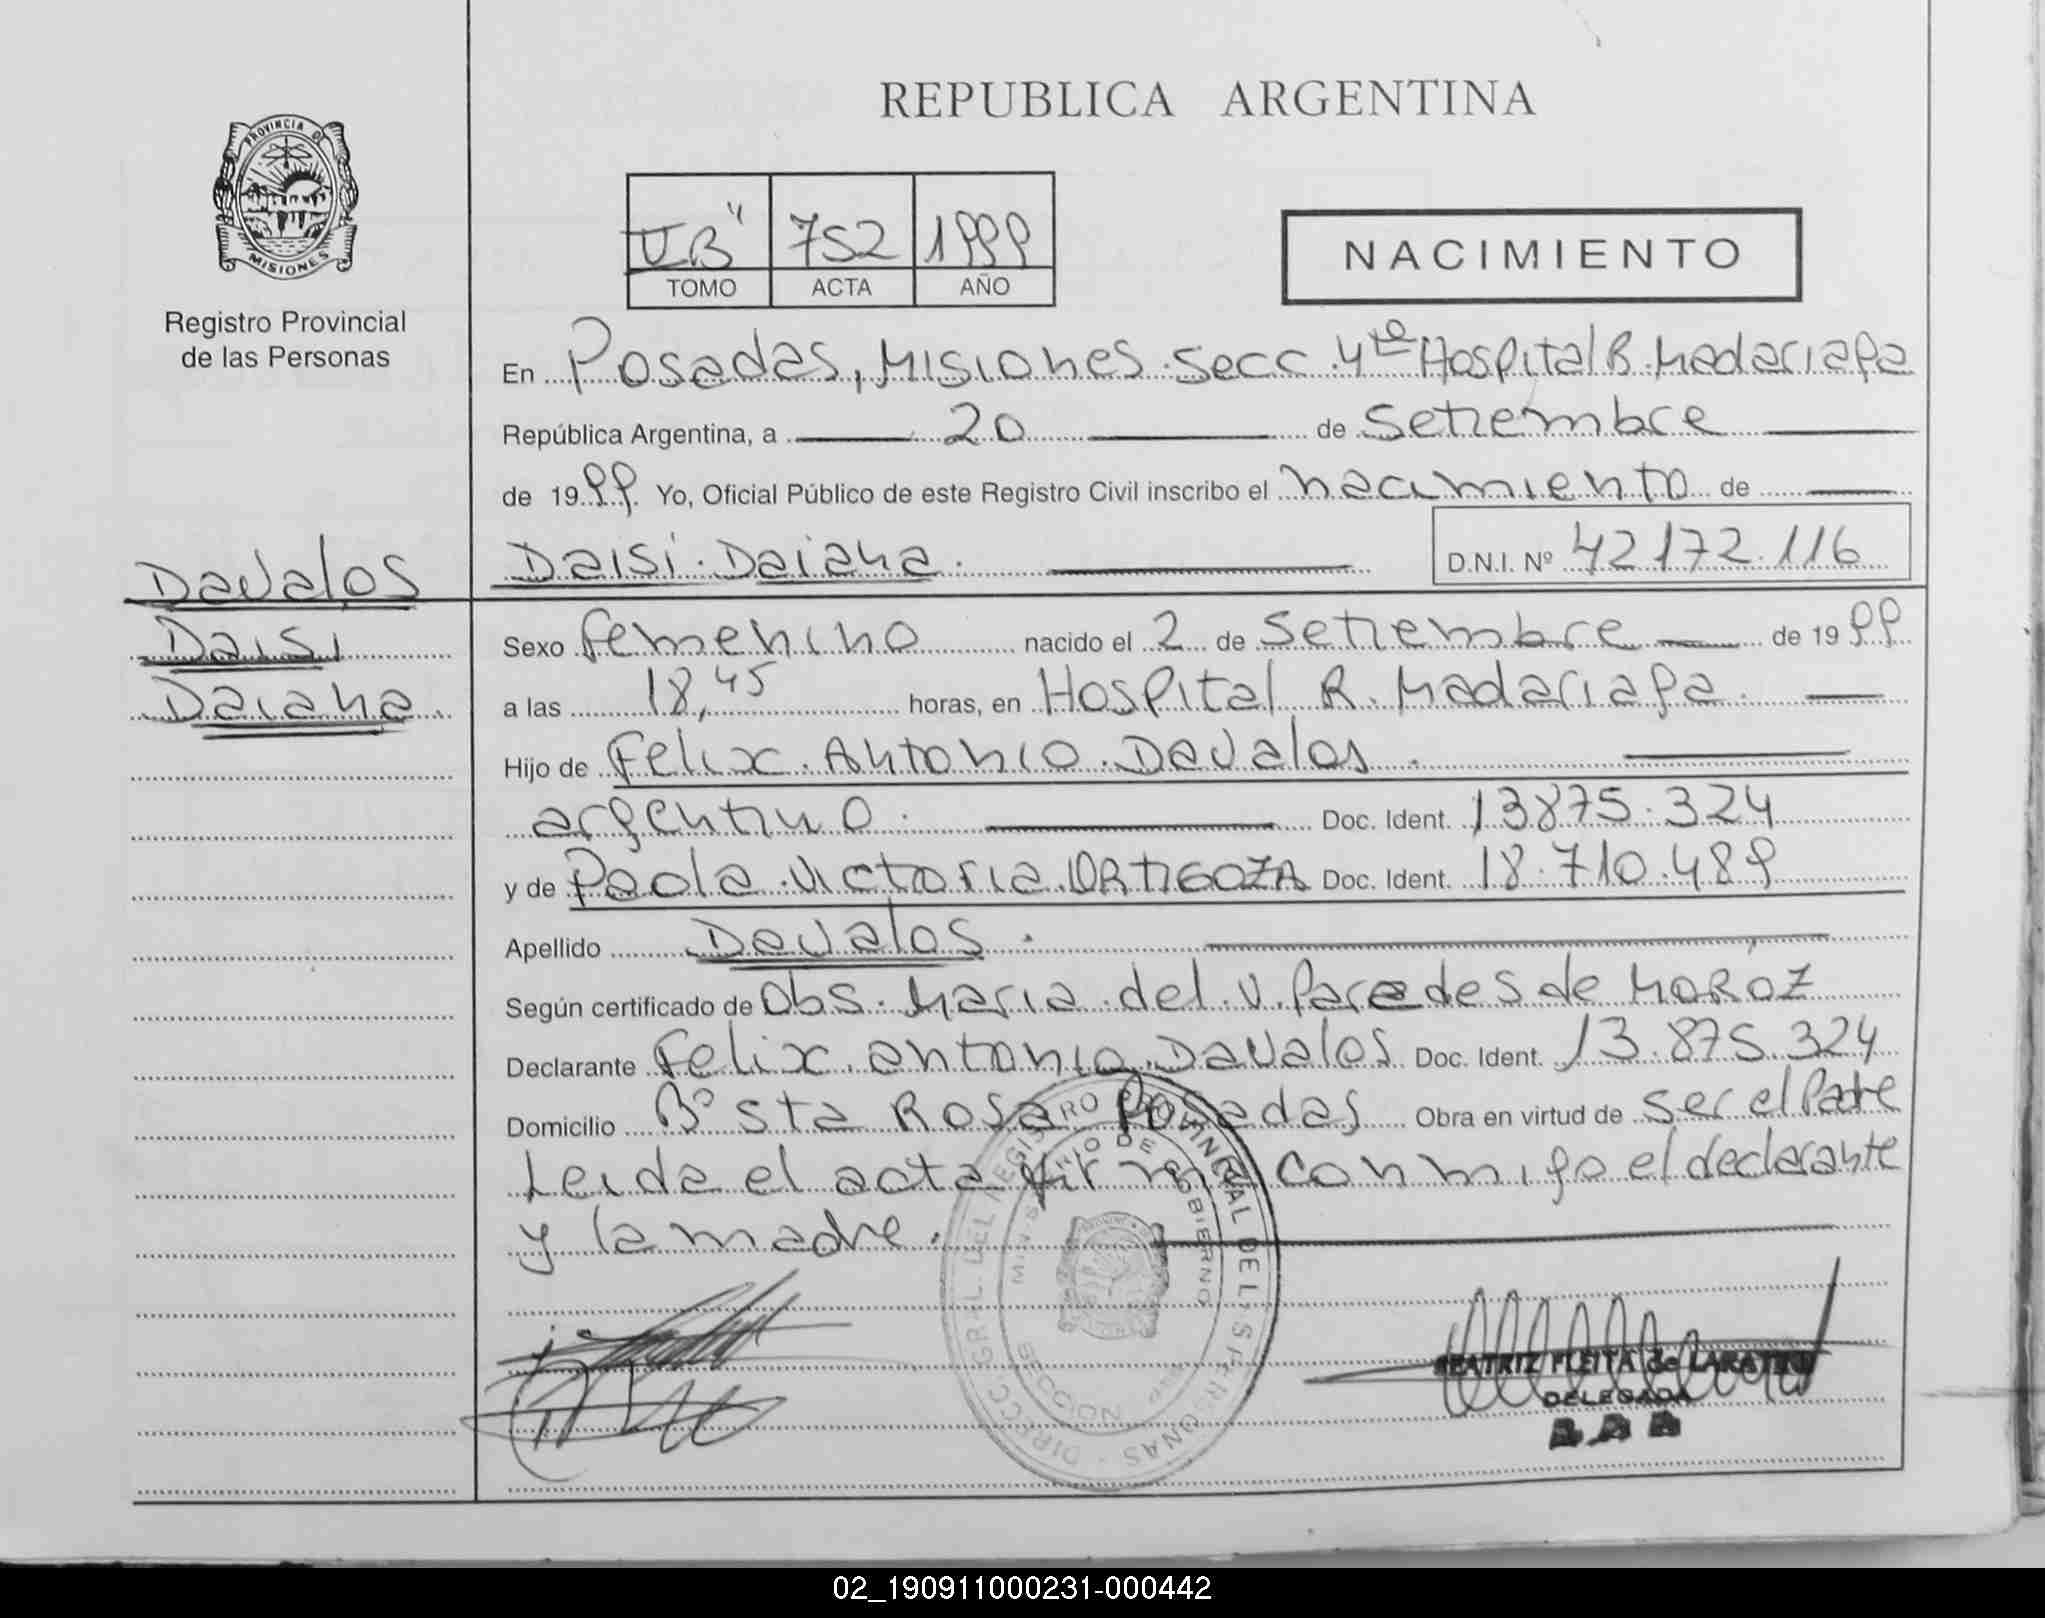 REPUBLICA ARGENTINA
PROVINCIA DE
MISIONES
Registro Provincial
de las Personas
752 1999
TOMO ACTA AÑO
NACIMIENTO
En Posadas, Misiones. Secc. 4ta Hospital R. Madariaga
República Argentina, a 20 de Setiembre
de 1999. Yo, Oficial Público de este Registro Civil inscribo el nacimiento de
Daisi. Daiana. D.N.I. Nº 42172.116
Davalos
Daisi
Daiana
Sexo femenino nacido el 2 de Setiembre de 1999
a las 18,45 horas, en Hospital R. Madariaga.
Hijo de Felix. Antonio. Davalos.
argentino. Doc. Ident. 13875.324
y de Paola. Victoria. ORTIGOZA Doc. Ident. 18.710.489
Apellido Davalos.
Según certificado de Obs. Maria. del. V. Paredes de MOROZ
Declarante Felix. antonio. Davalos. Doc. Ident. 13.875.324
Domicilio Bº Sta Rosa Posadas Obra en virtud de ser el Padre
Leida el acta firma conmigo el declarante
y la madre.
DIRECC. GRAL. DEL REGISTRO PROVINCIAL DE LAS PERSONAS
MINISTERIO DE GOBIERNO
BEATRIZ FLEITA de
DELEGADA
02_190911000231-000442